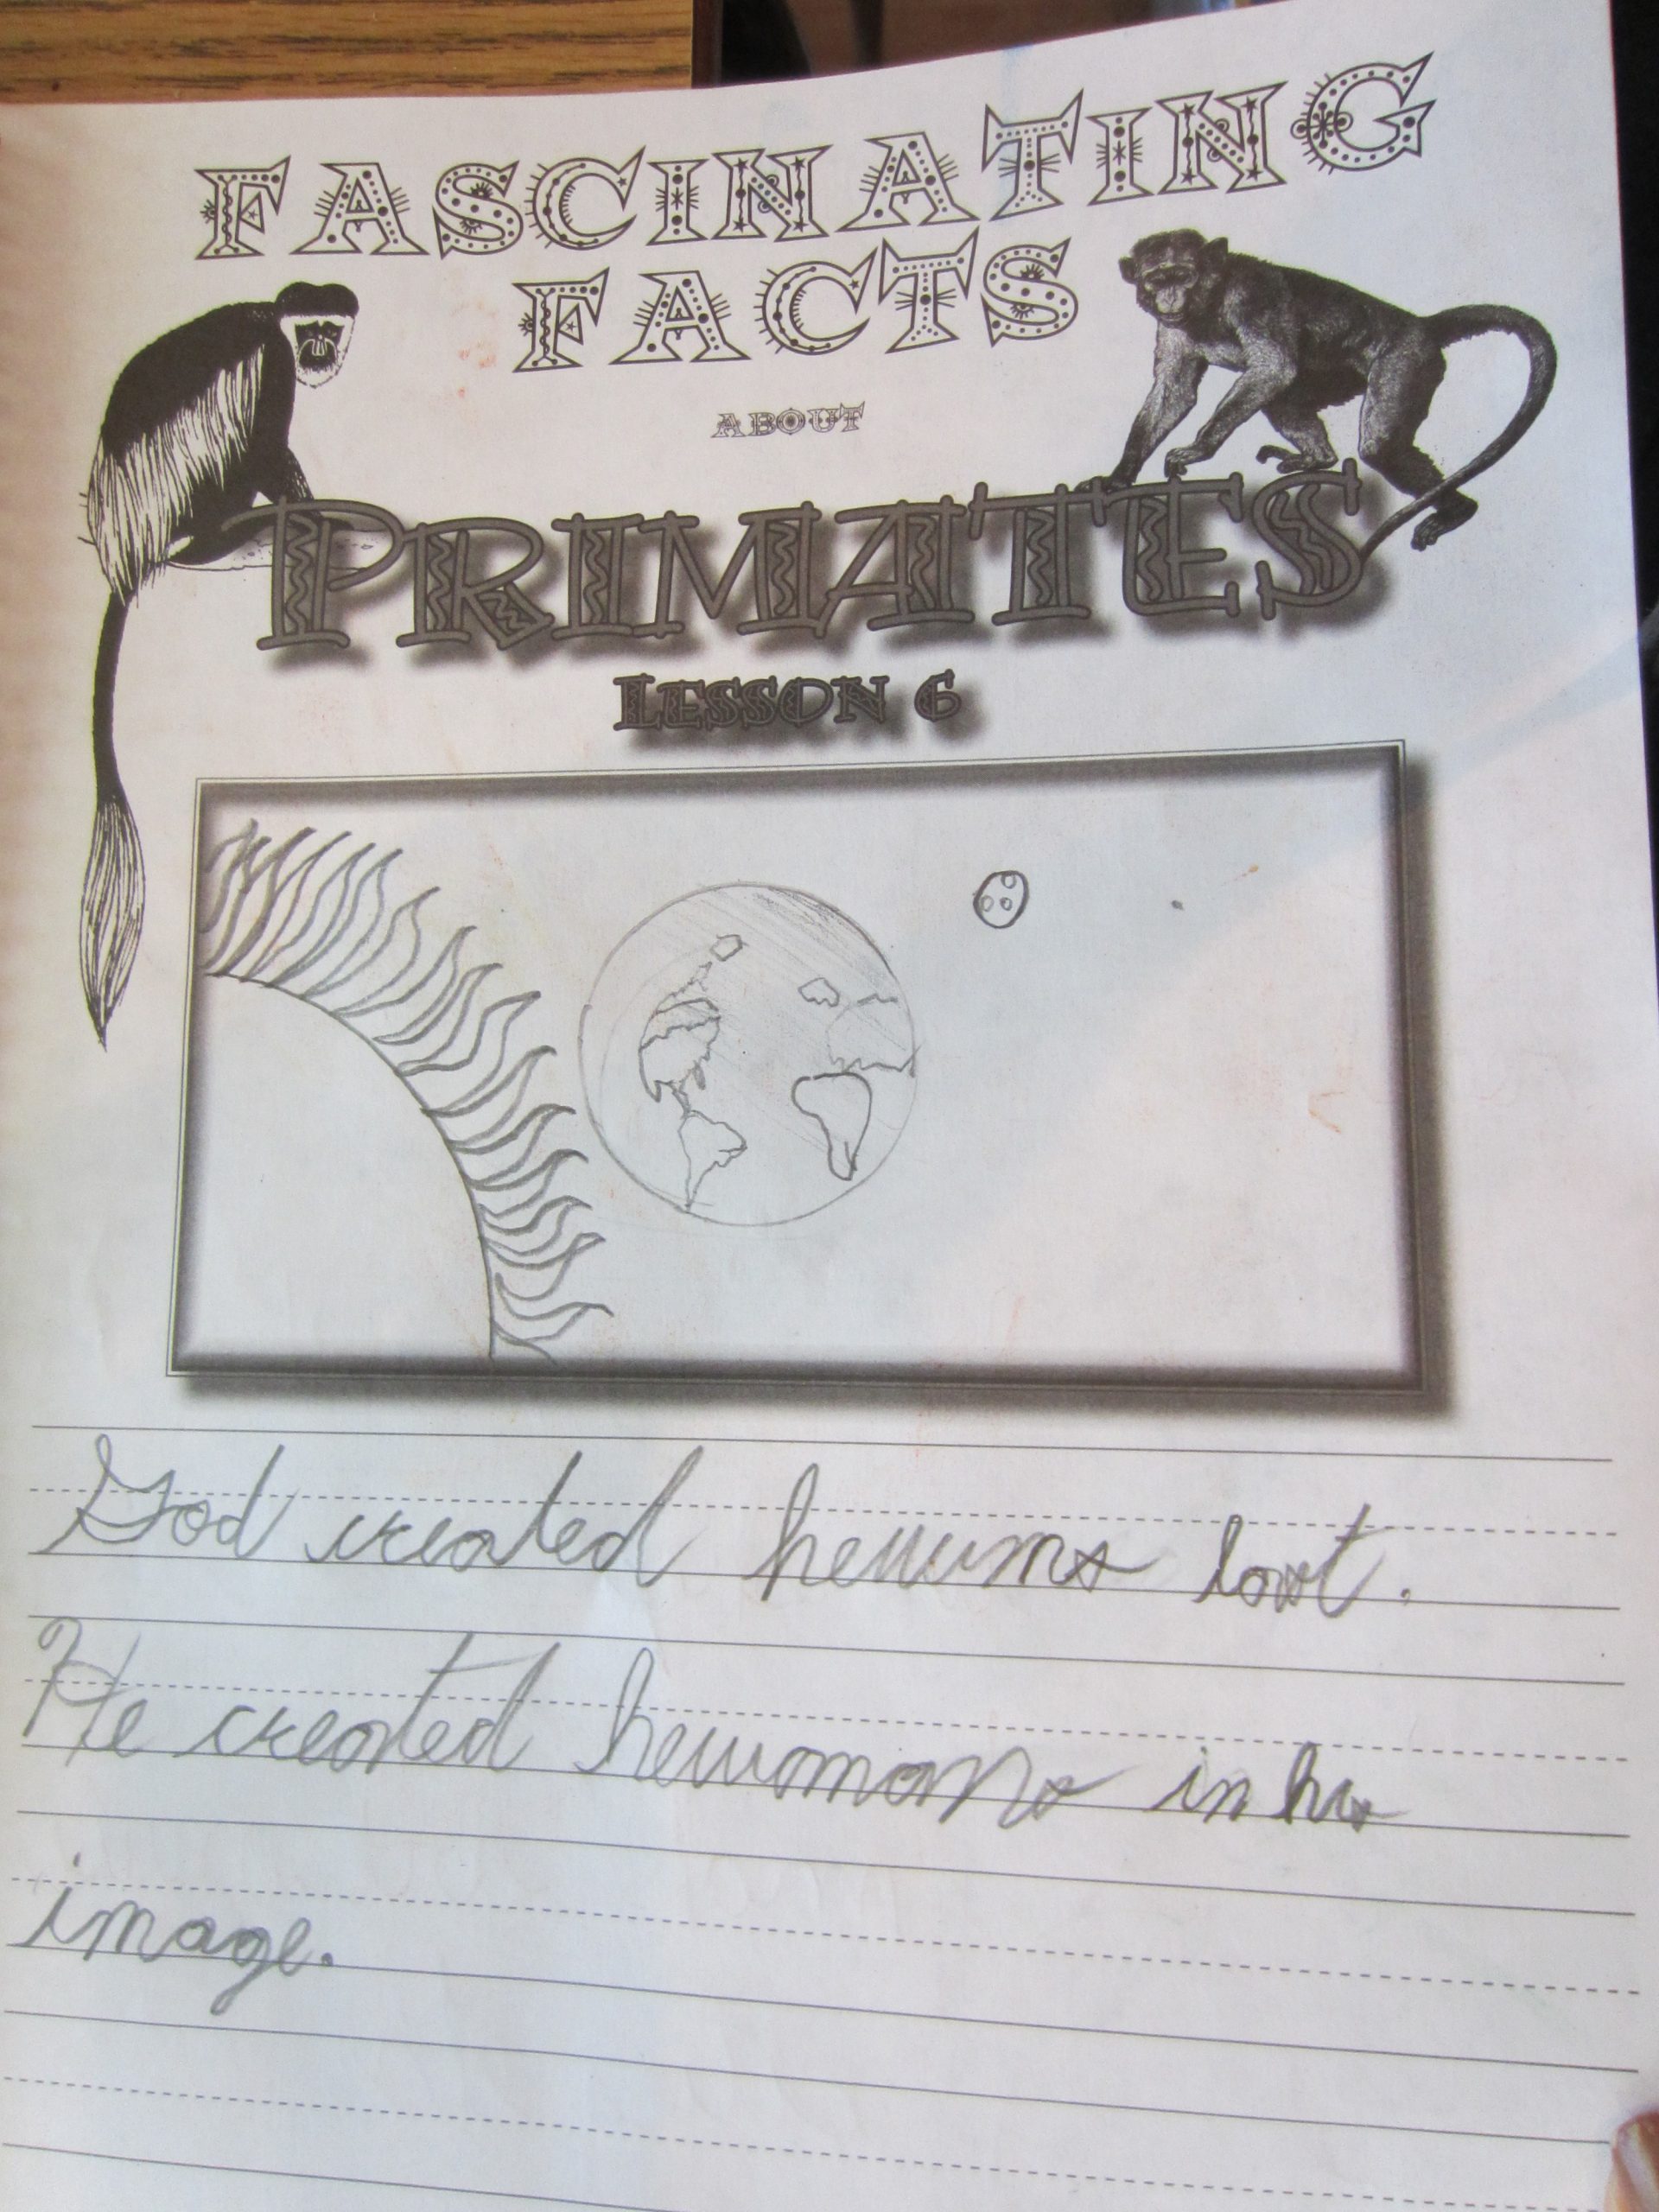 FASCINATING
FACTS
ABOUT
PRIMATES
LESSON 6
God created hewums last.
He created hewomans in his
image.